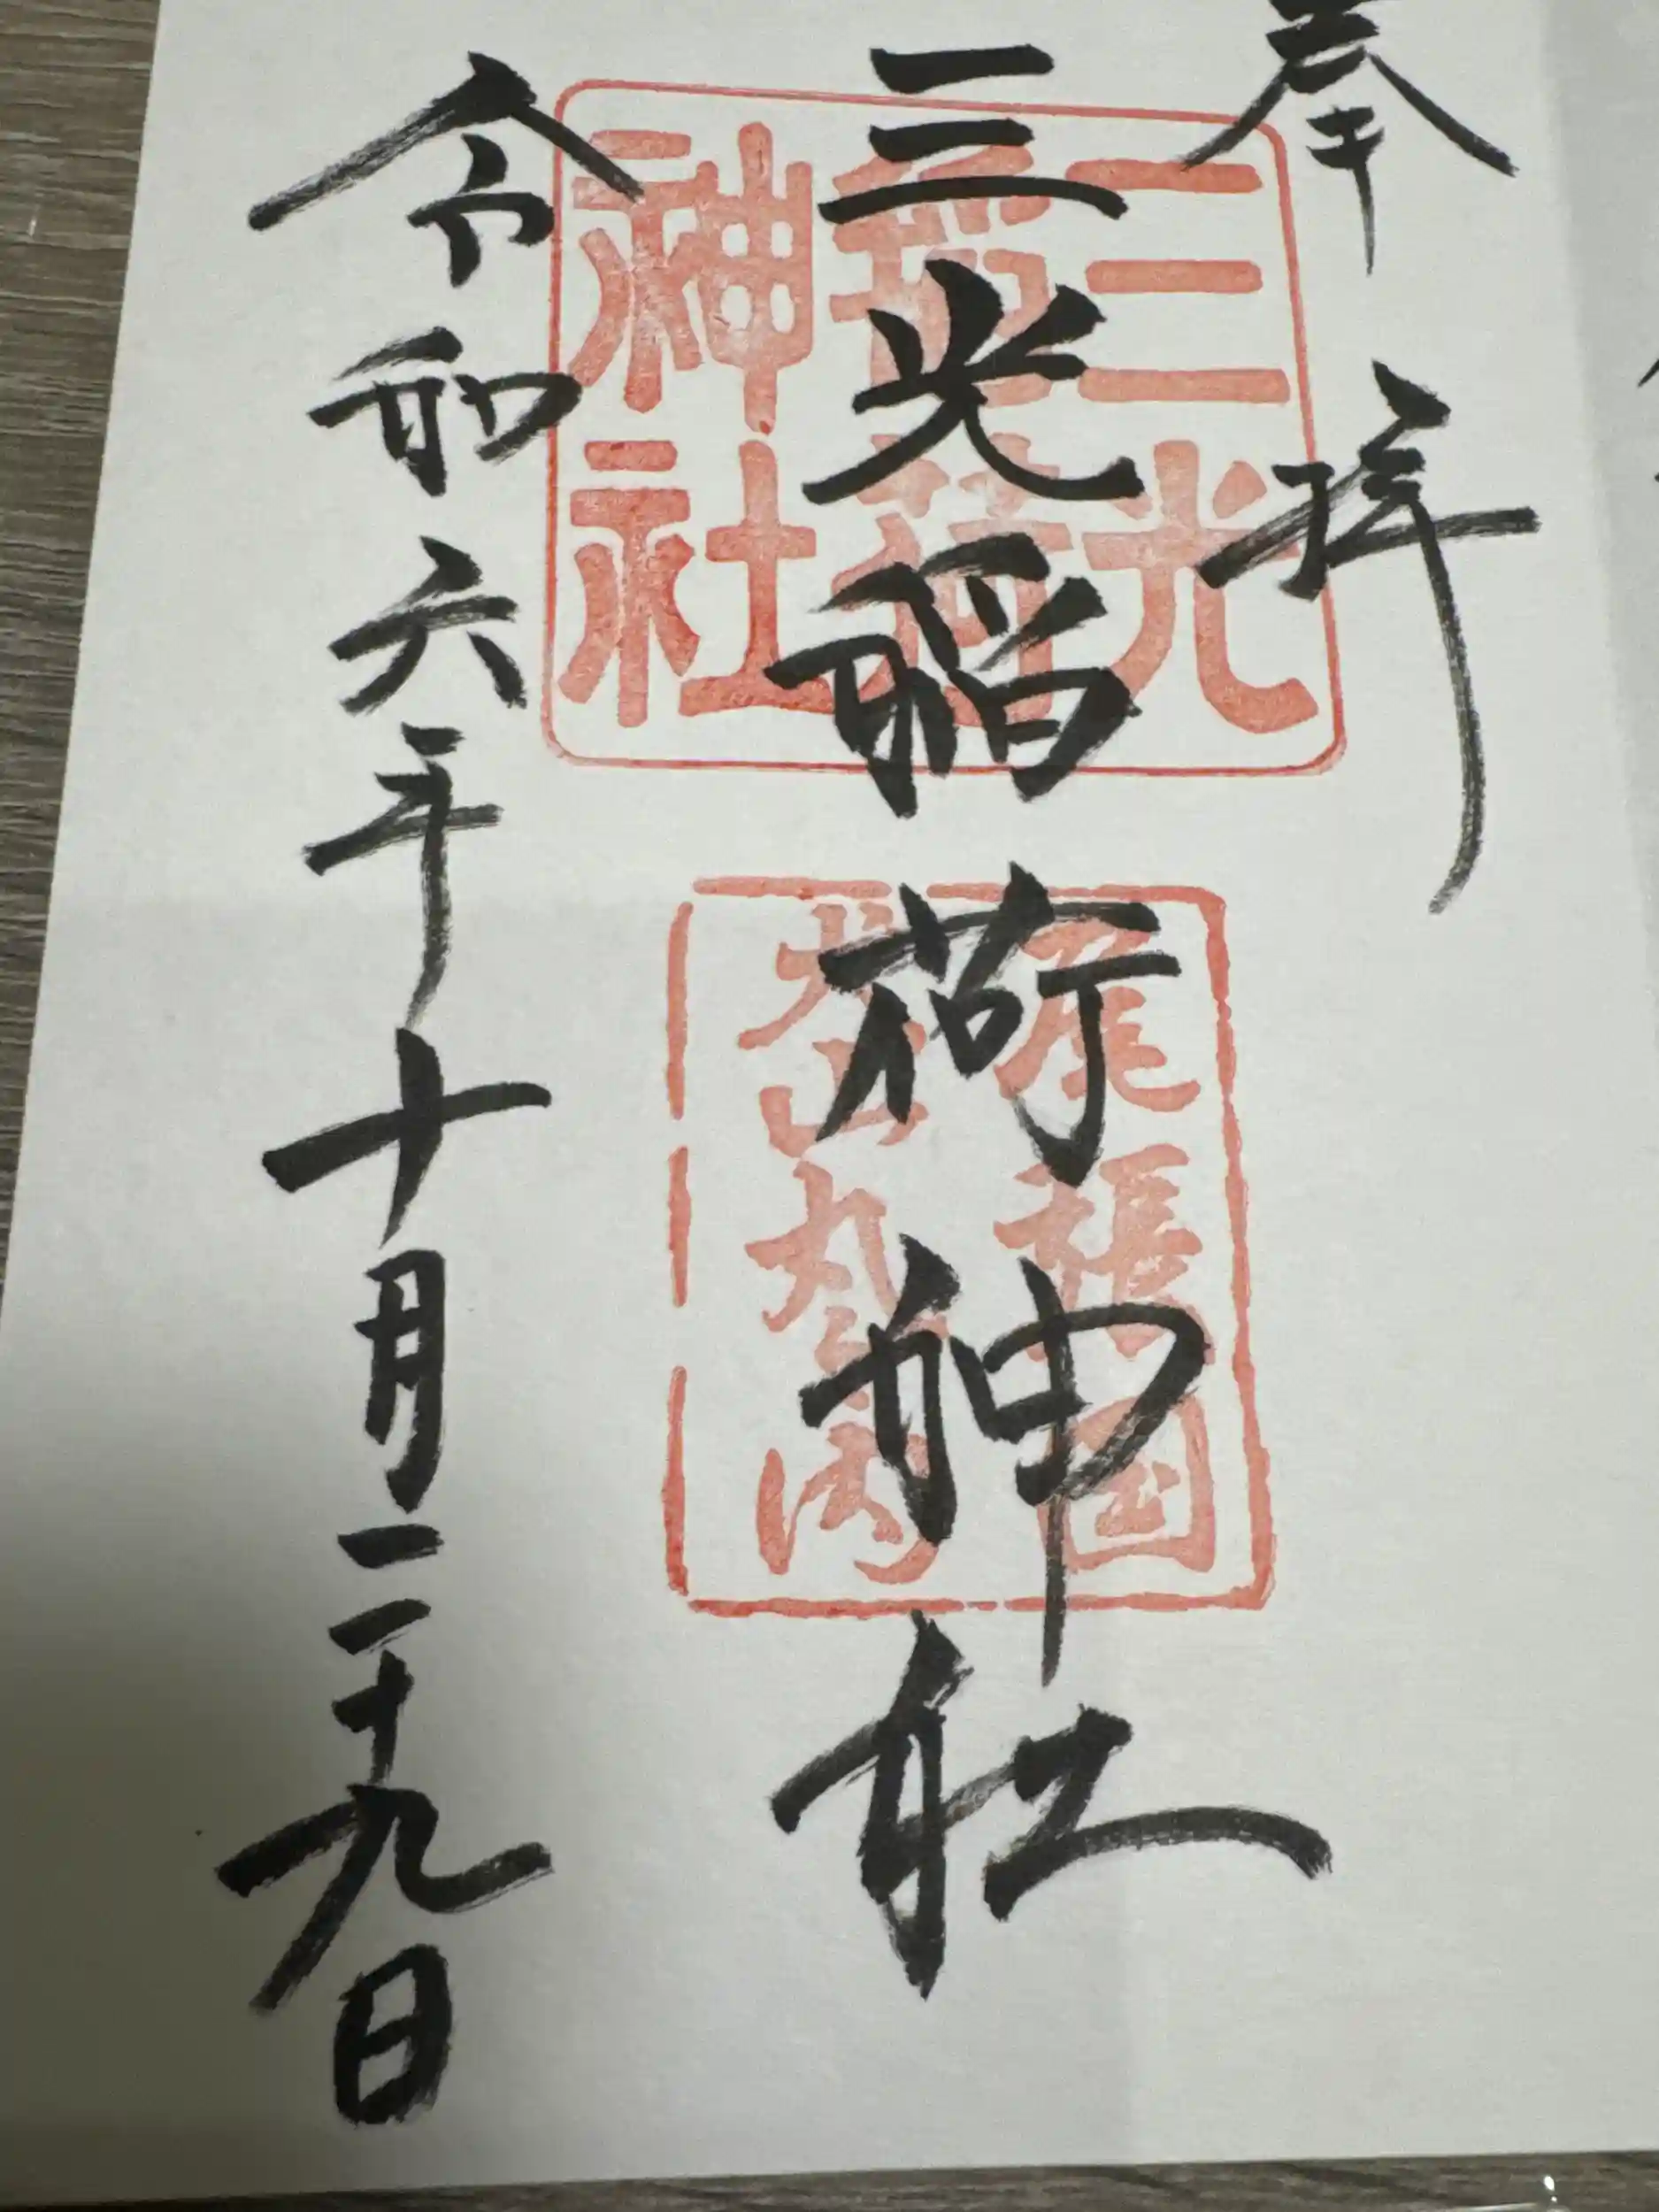 奉拝
三光稲荷神社
三光稲荷神社
尾張国
犬山丸之内
令和六年十月二十九日